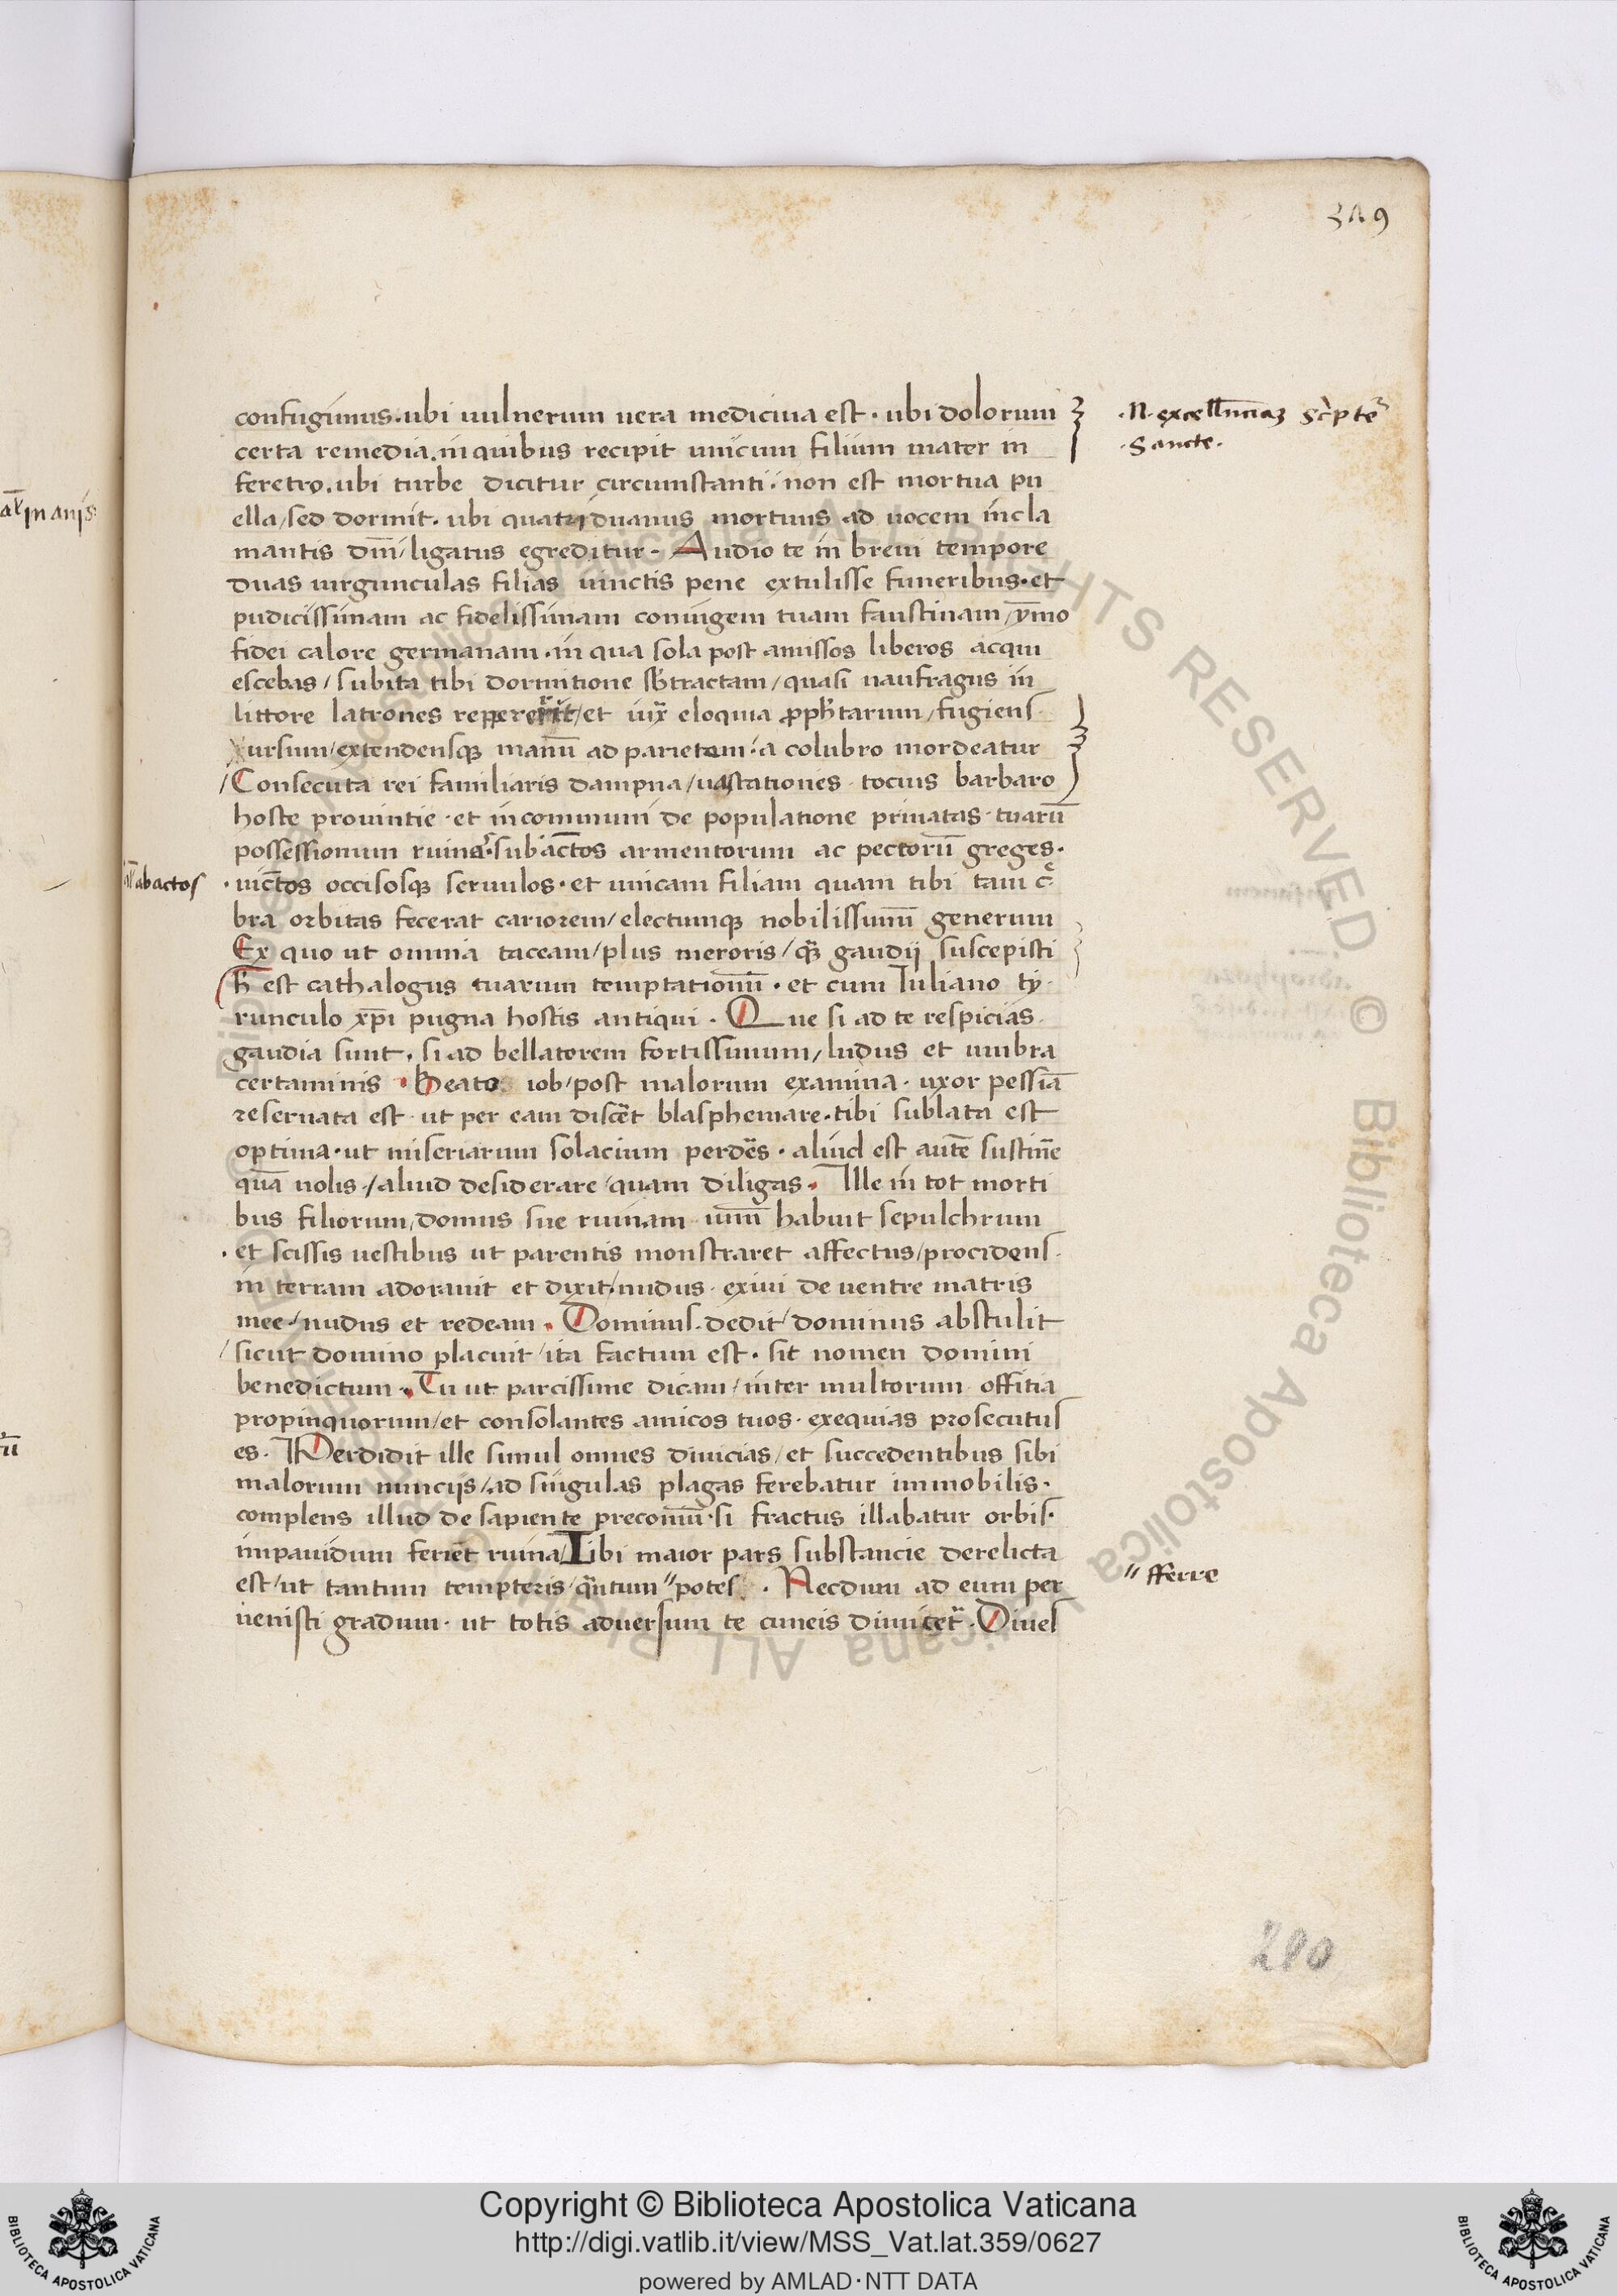 309
confugimus. ubi uulnerum uera medicina est · ubi dolorum
certa remedia. in quibus recipit unicum filium mater in
feretro. ubi turbe dicitur circumstanti. non est mortua pu
ella/ sed dormit. ubi quatriduanus mortuus ad uocem incla
mantis dn̄i/ ligatus egreditur. Audio te in breui tempore
duas uirgunculas filias uinctis pene extulisse funeribus. et
pudicissimam ac fidelissimam coniugem tuam faustinam/ ȳmo
fidei calore germanam. in qua sola post amissos liberos acqui
escebas/ subita tibi dormitione sb̄tractam/ quasi naufragus in
littore latrones et iux̄ eloquia ꝓph̄tarum/ fugiens
ursum/ extendensqꝫ manū ad parietem/ a colubro mordeatur
/Consecuta rei familiaris dampna/ uastationes tocius barbaro
hoste prouintie · et in communi de populatione priuatas tuarū
possessionum ruinas. subactos armentorum ac pectorū greges.
· uictos occisosqꝫ seruulos · et unicam filiam quam tibi tam c̄
bra orbitas fecerat cariorem/ electumqꝫ nobilissimū generum
Ex quo ut omnia taceam/ plus meroris/ qꝫ̄ gaudij suscepisti
h̄ est cathalogus tuarum temptationū · et cum Iuliano ty
runculo xp̄i pugna hostis antiqui. Que si ad te respicias
gaudia sunt. si ad bellatorem fortissimum/ ludus et umbra
certaminis · Beato iob/ post malorum examina · uxor pessiā
reseruata est · ut per eam discēt blasphemare. tibi sublata est
optima. ut miseriarum solacium perdēs · aliud est autē sustinē
quā nolis/ aliud desiderare/ quam diligas. Ille in tot morti
bus filiorum/ domus sue ruinam unū habuit sepulchrum
· et scissis uestibus ut parentis monstraret affectus/ procidens
in terram adorauit et dixit/ nudus exiui de uentre matris
mee/ nudus et redeam. Dominus dedit/ dominus abstulit
/sicut domino placuit/ ita factum est. sit nomen domini
benedictum. Tu ut parcissime dicam/ inter multorum offitia
propinquorum/ et consolantes amicos tuos · exequias prosecutus
es. Perdidit ille simul omnes diuicias/ et succedentibus sibi
malorum nuncijs/ ad singulas plagas ferebatur immobilis.
complens illud de sapiente preconiū. si fractus illabatur orbis.
impauidum feriēt ruina/ Tibi maior pars substancie derelicta
est/ ut tantum tempteris/ qn̄tum "potes · Necdum ad eum per
uenisti gradum · ut totis aduersum te cuneis dimicet̄. Diues
.N. excellenciaꝫ sc̄pte
·Sancte.
al̄ inanis
al̄ abactos
" fferre
280
Copyright © Biblioteca Apostolica Vaticana
http://digi.vatlib.it/view/MSS_Vat.lat.359/0627
powered by AMLAD·NTT DATA
BIBLIOTECA APOSTOLICA VATICANA
BIBLIOTECA APOSTOLICA VATICANA